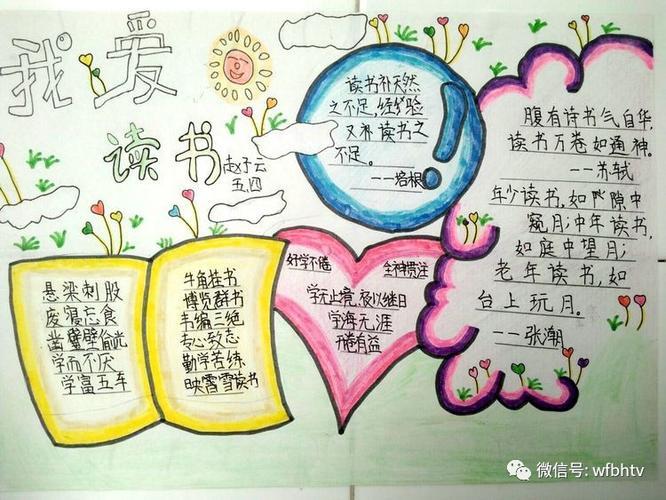 我爱
读书
赵子云
五.四
读书补天然
之不足,经验
又补读书之
不足。
——培根
腹有诗书气自华,
读书万卷如通神。
——苏轼
年少读书,如隙中
窥月;中年读书,
如庭中望月;
老年读书,如
台上玩月。
——张潮
悬梁刺股
废寝忘食
凿壁偷光
学而不厌
学富五车
牛角挂书
博览群书
韦编三绝
专心致志
勤学苦练
映雪读书
好学不倦
全神贯注
学无止境,夜以继日
学海无涯
开卷有益
微信号: wfbhtv